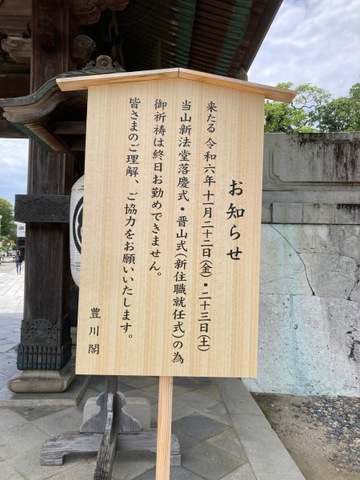 お知らせ
来たる 令和六年十一月二十二日(金)・二十三日(土)
当山新法堂落慶式・晋山式(新住職就任式)の為
御祈祷は終日お勤めできません。
皆さまのご理解、ご協力をお願いいたします。
豊川閣